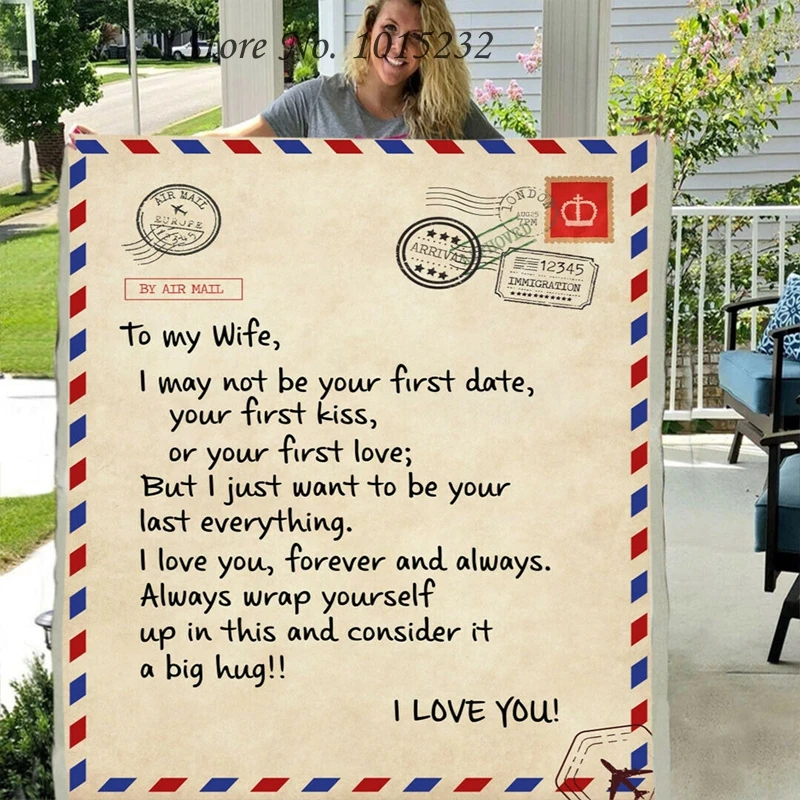 Store No. 1015232
AIR MAIL
EUROPE
12345
LONDON
AUG25
7PM
ARRIVAL
12345
IMMIGRATION
BY AIR MAIL
To my Wife,
I may not be your first date,
your first kiss,
or your first love;
But I just want to be your
last everything.
I love you, forever and always.
Always wrap yourself
up in this and consider it
a big hug!!
I LOVE YOU!